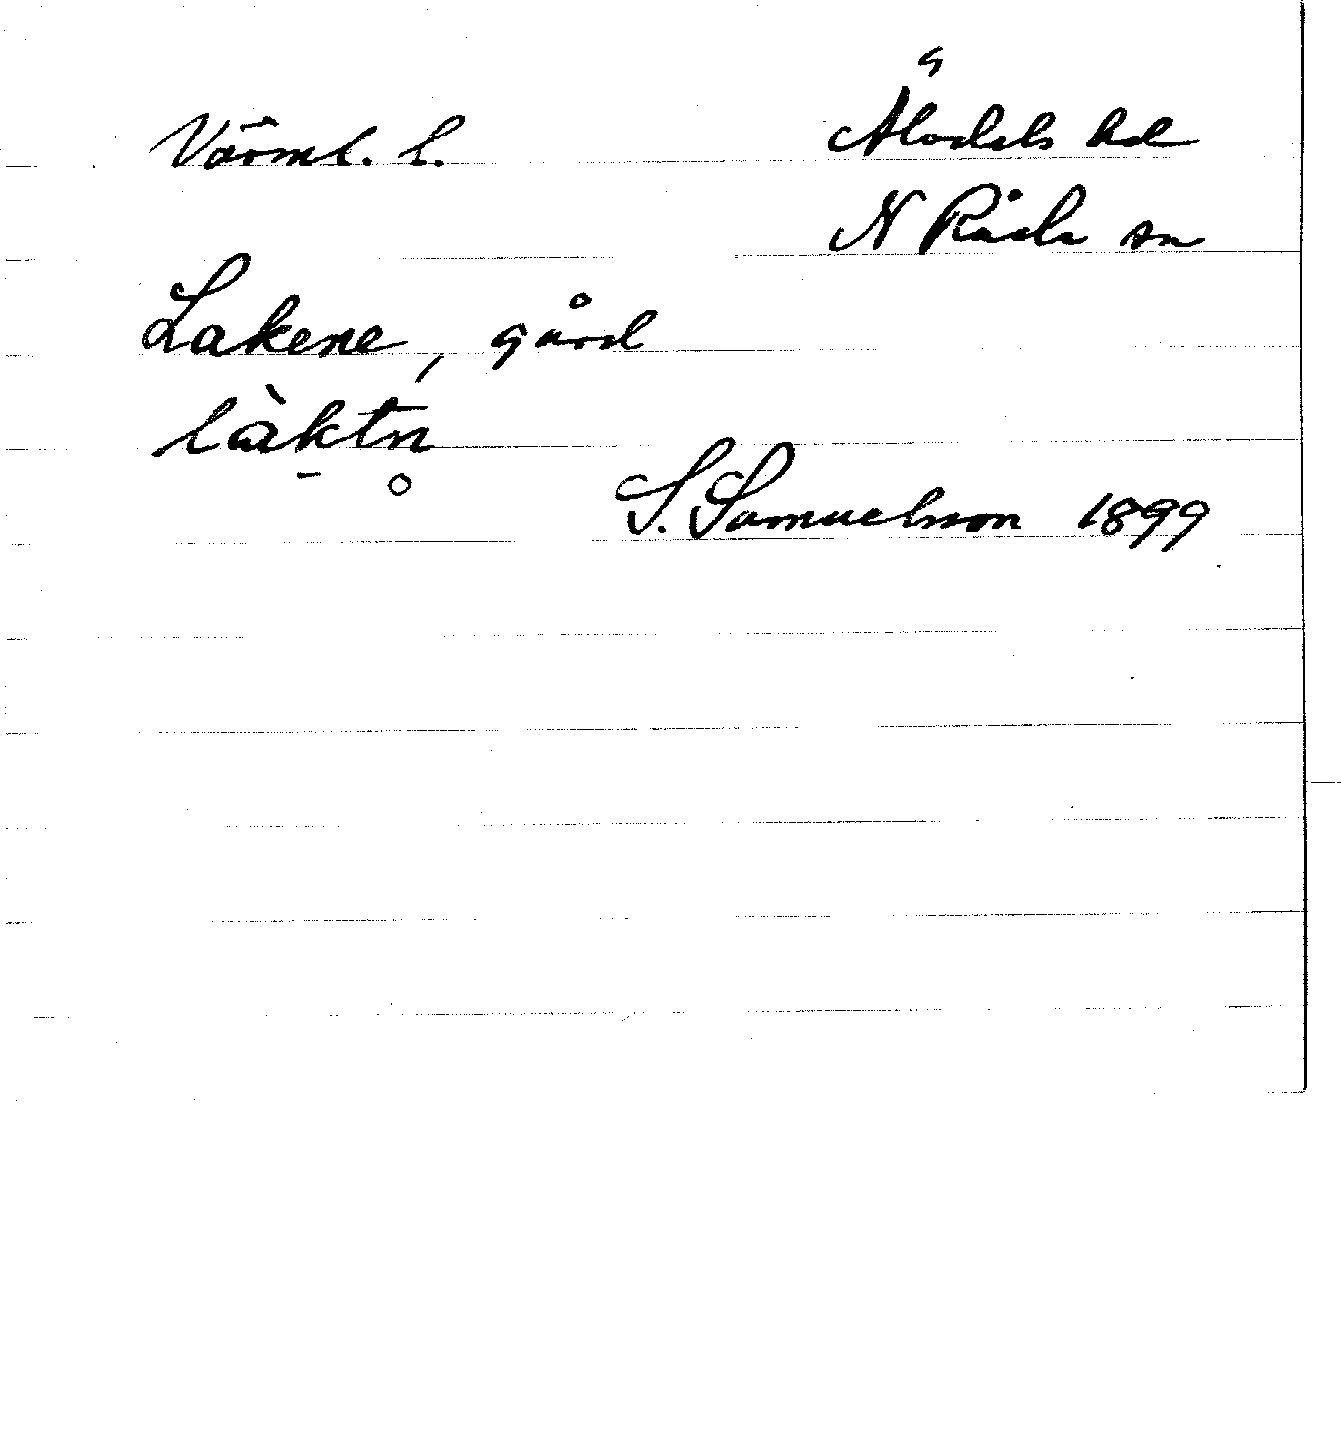 Värml. l.
Älvdals hd
N Råda sn
Lakene, gård
làktn̥
S. Samuelsson 1899